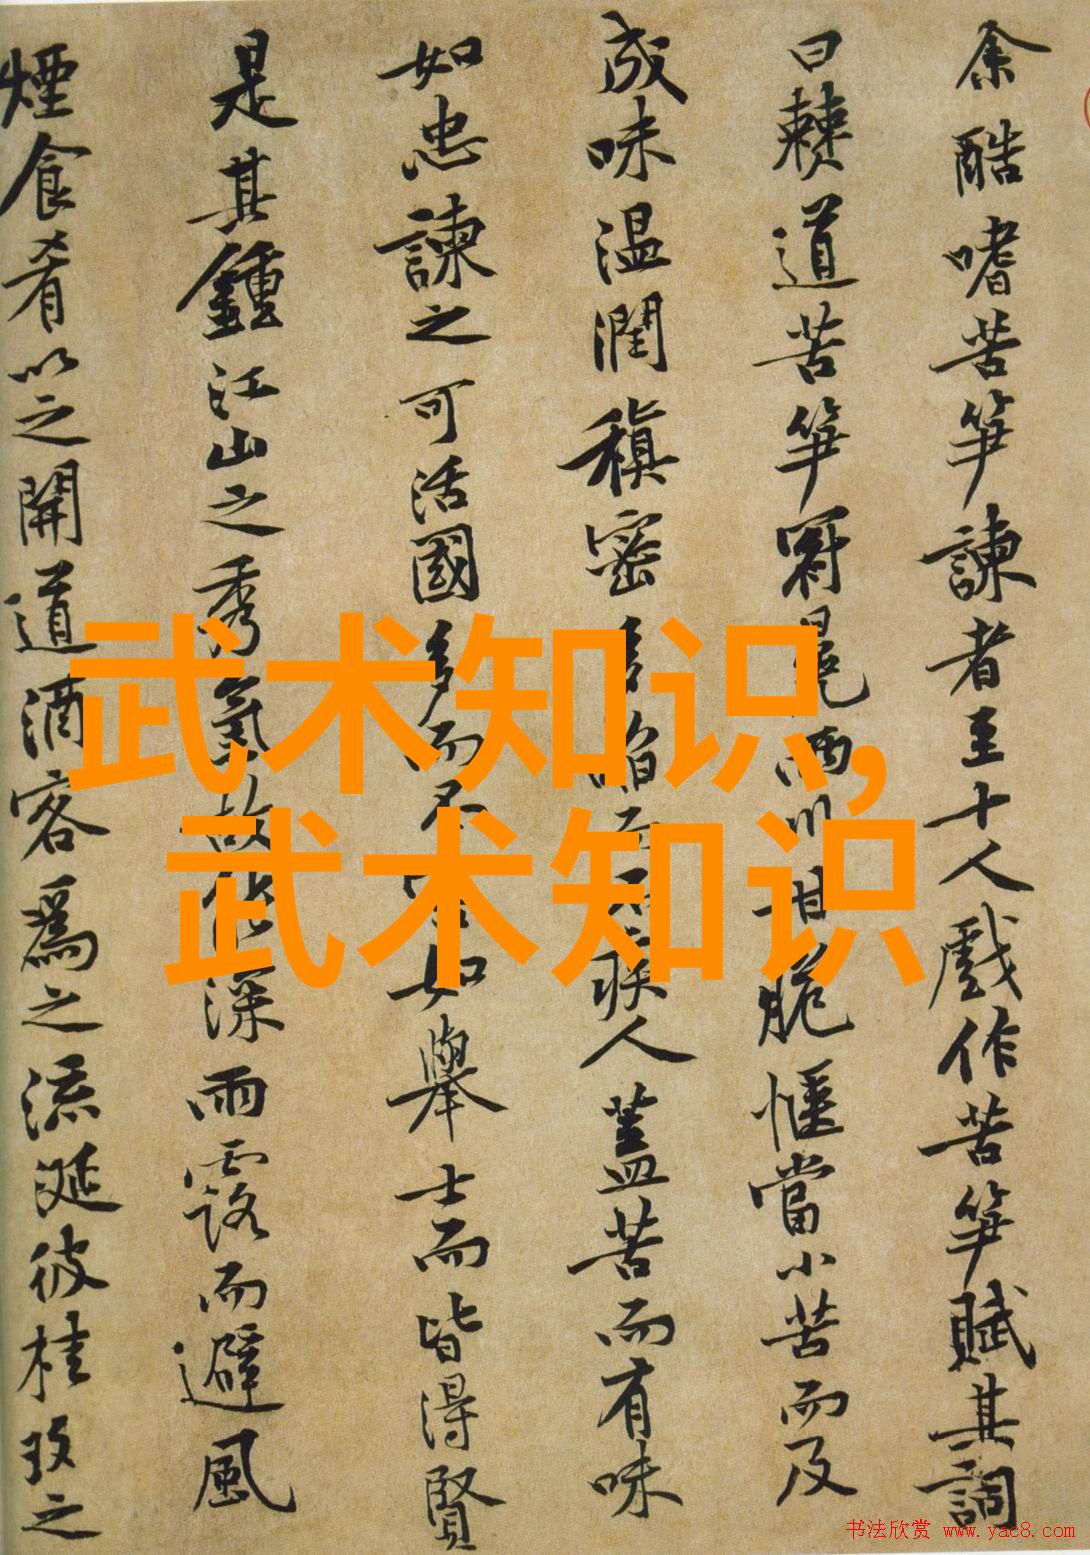 余酷嗜苦笋諫者至十人戲作苦笋賦其詞
曰僰道苦笋冠冕兩川甘脆愜當小苦而及
成味温潤稹密多啗而不疾人蓋苦而有味
如忠諫之可活國多而不害如舉士而皆得賢
是其鍾江山之秀氣故能深雨露而避風
煙食肴以之開道酒客爲之流涎彼桂玫之
武术知识,
武术知识
书法欣赏 www.yac8.com